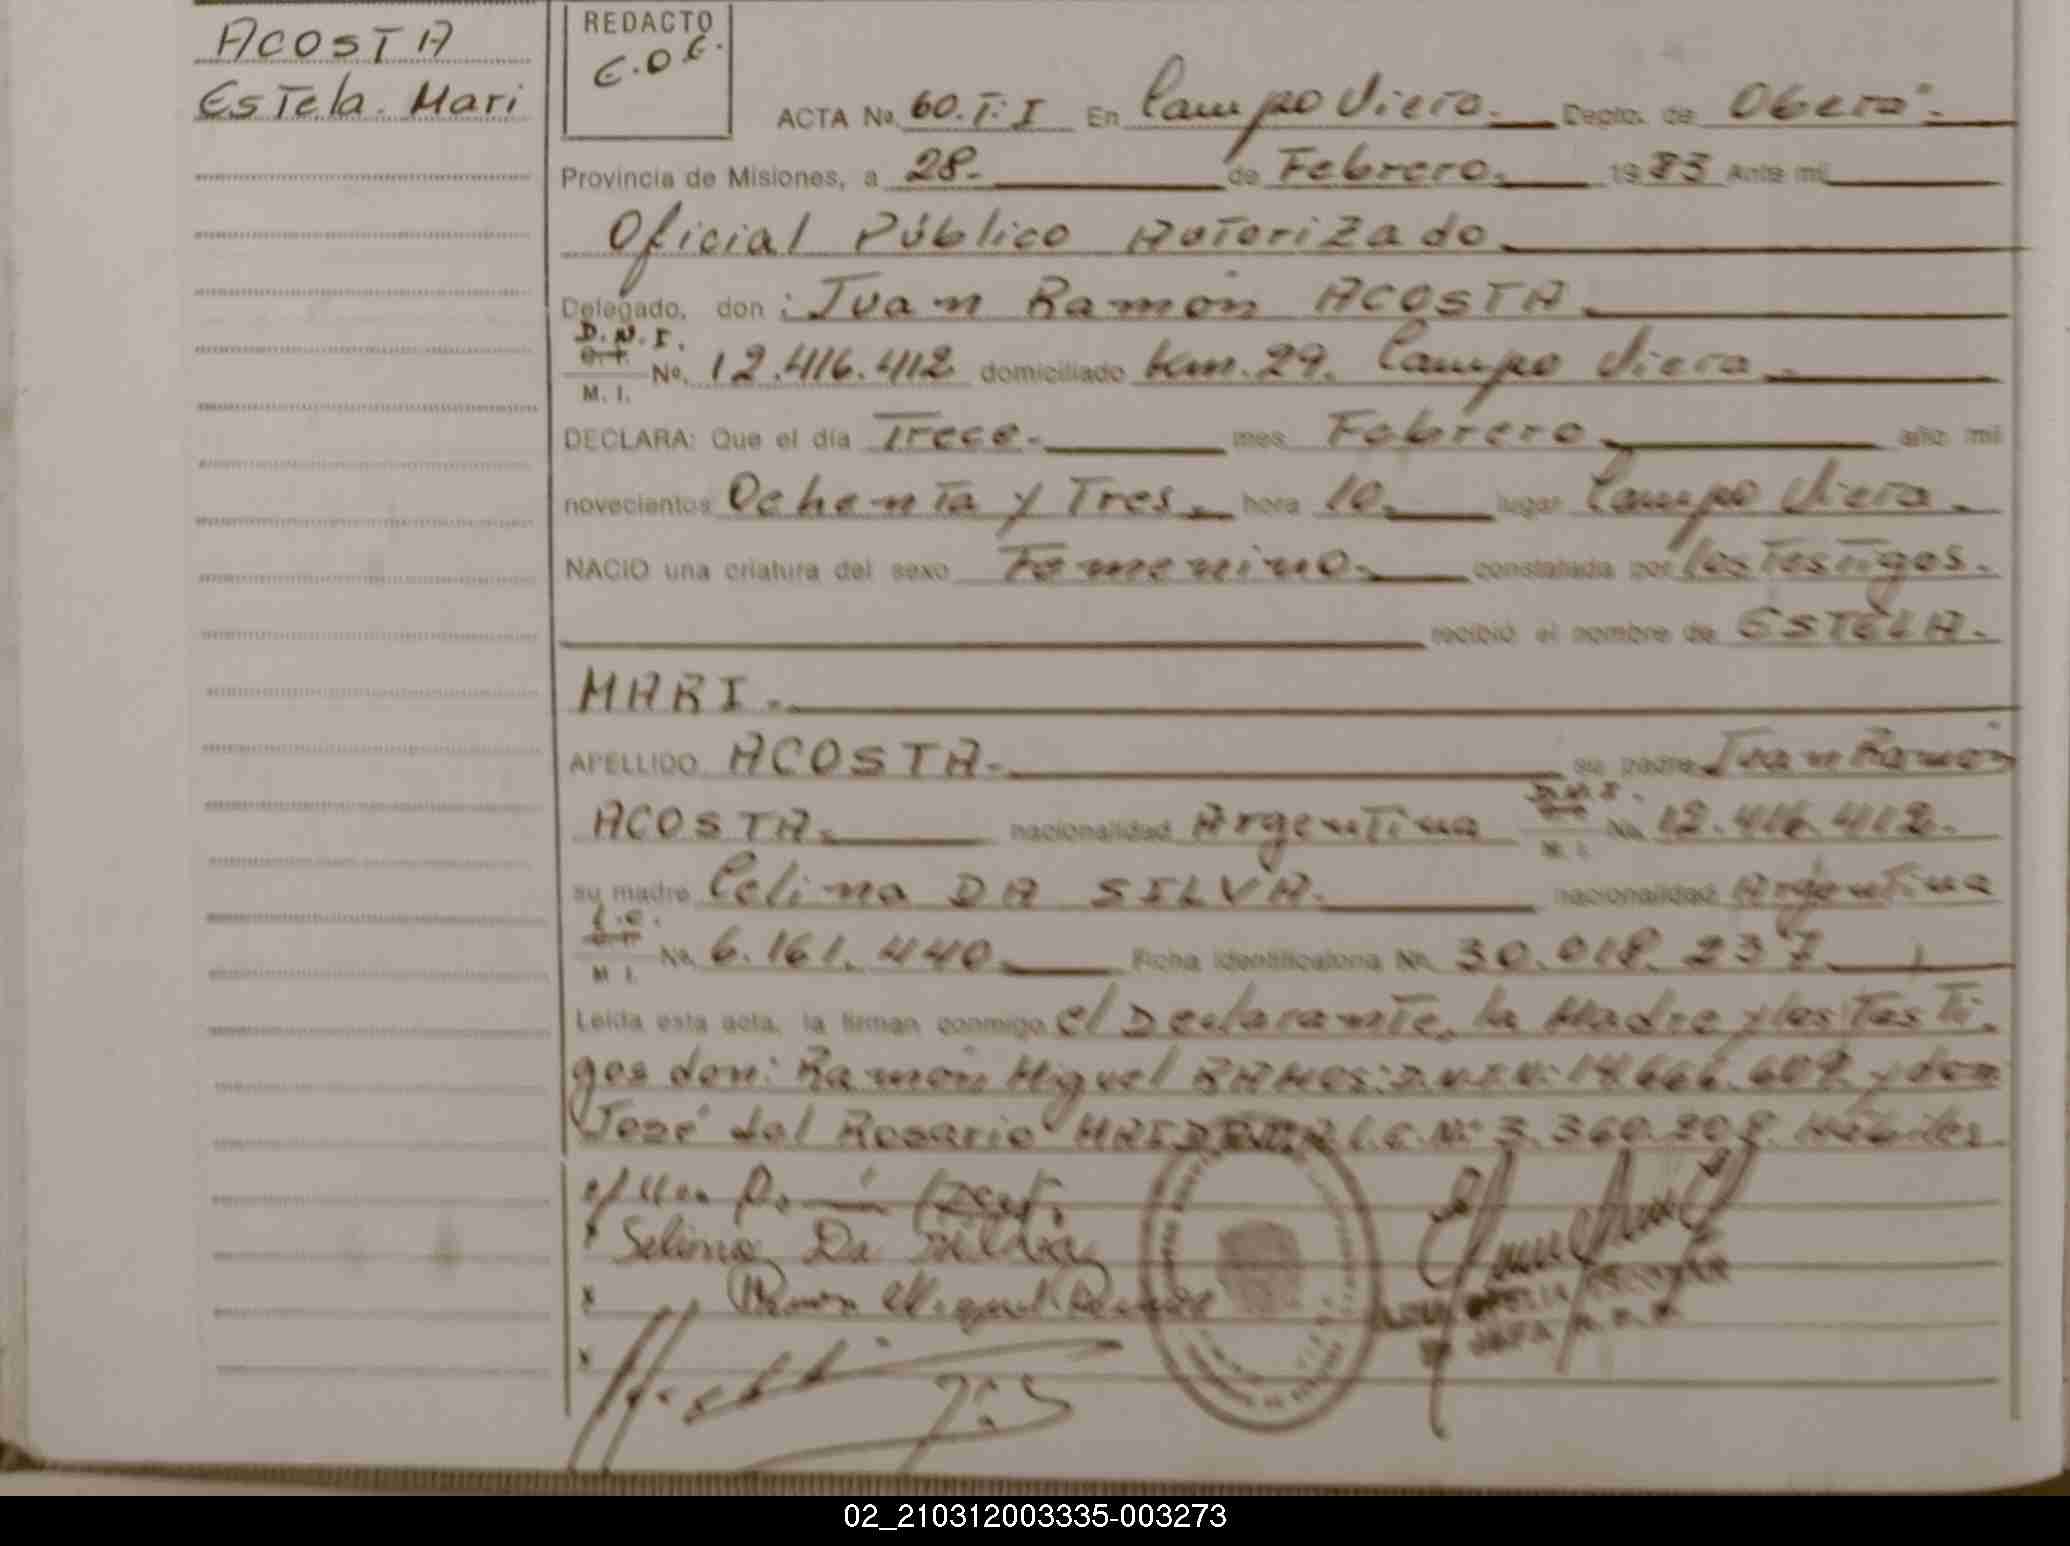 ACOSTA
Estela. Mari
REDACTO
E.O.E.
ACTA No. 60.T:I En Campo Viera. Depto. de Oberá.
Provincia de Misiones, a 28. de Febrero. 1983 Ante mi
Oficial Público Autorizado
Delegado, don : Juan Ramón ACOSTA
D.N.I.
No. 12.416.412 domiciliado km.29. Campo Viera
M. I.
DECLARA: Que el día Trece. mes Febrero año mil
novecientos Ochenta y Tres. hora 10. lugar Campo Viera.
NACIO una criatura del sexo Femenino. constatada por los Testigos.
recibió el nombre de ESTELA.
MARI.
APELLIDO ACOSTA. su padre Juan Ramón
ACOSTA. nacionalidad Argentina D.N.I. No. 12.416.412.
M. I.
su madre Celina DA SILVA. nacionalidad Argentina
L.C.
No. 6.161.440 Ficha identificatoria No. 30.018.237
M I.
Leída esta acta, la firman conmigo el Declarante, la Madre y los Testi.
gos don: Ramón Miguel RAMOS: D.N.I.N: 14.666.609. y don
José del Rosario L.C.Nº 3.360.208. Hábiles
Selima Da Silva
Ramon Miguel Ramos
02_210312003335-003273